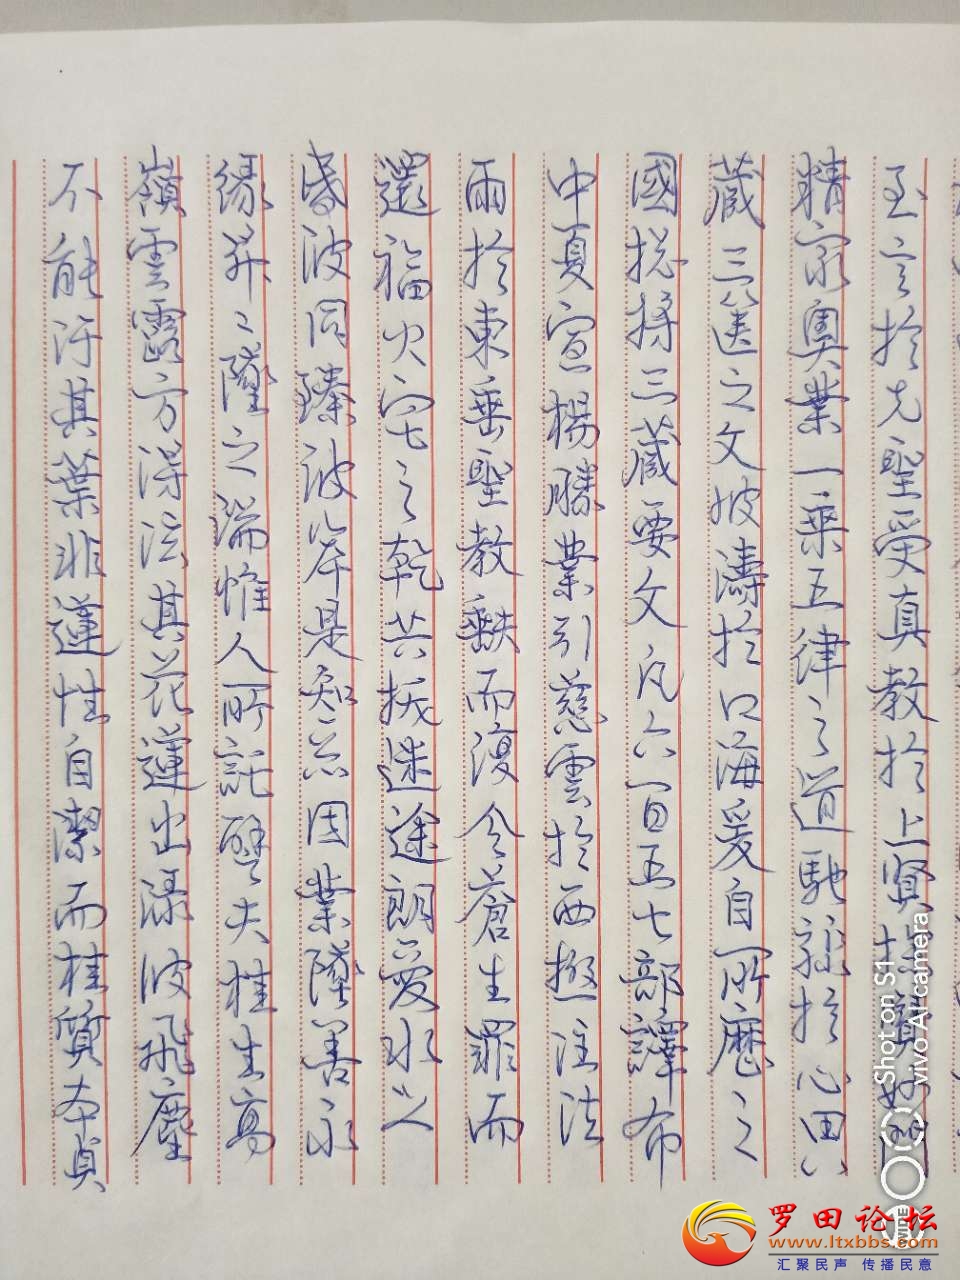 至言於先聖受真教於上賢探賾妙門
精窮奧業一乘五律之道馳驟於心田八
藏三篋之文波濤於口海爰自所歷之
國総將三藏要文凡六百五七部譯布
中夏宣楊勝業引慈雲於西極注法
雨於東垂聖教缺而復全蒼生罪而
還福火宅之乾共拔迷途朗愛水之
昏波同臻彼岸是知惡因業墜善永
緣昇〻墜之端惟人所託譬夫桂生高
嶺雲露方得泫其花蓮出淥波飛塵
不能汙其葉非蓮性自潔而桂質本貞
Shot on S1
vivo AI camera
罗田论坛
www.ltxbbs.com
汇聚民声 传播民意